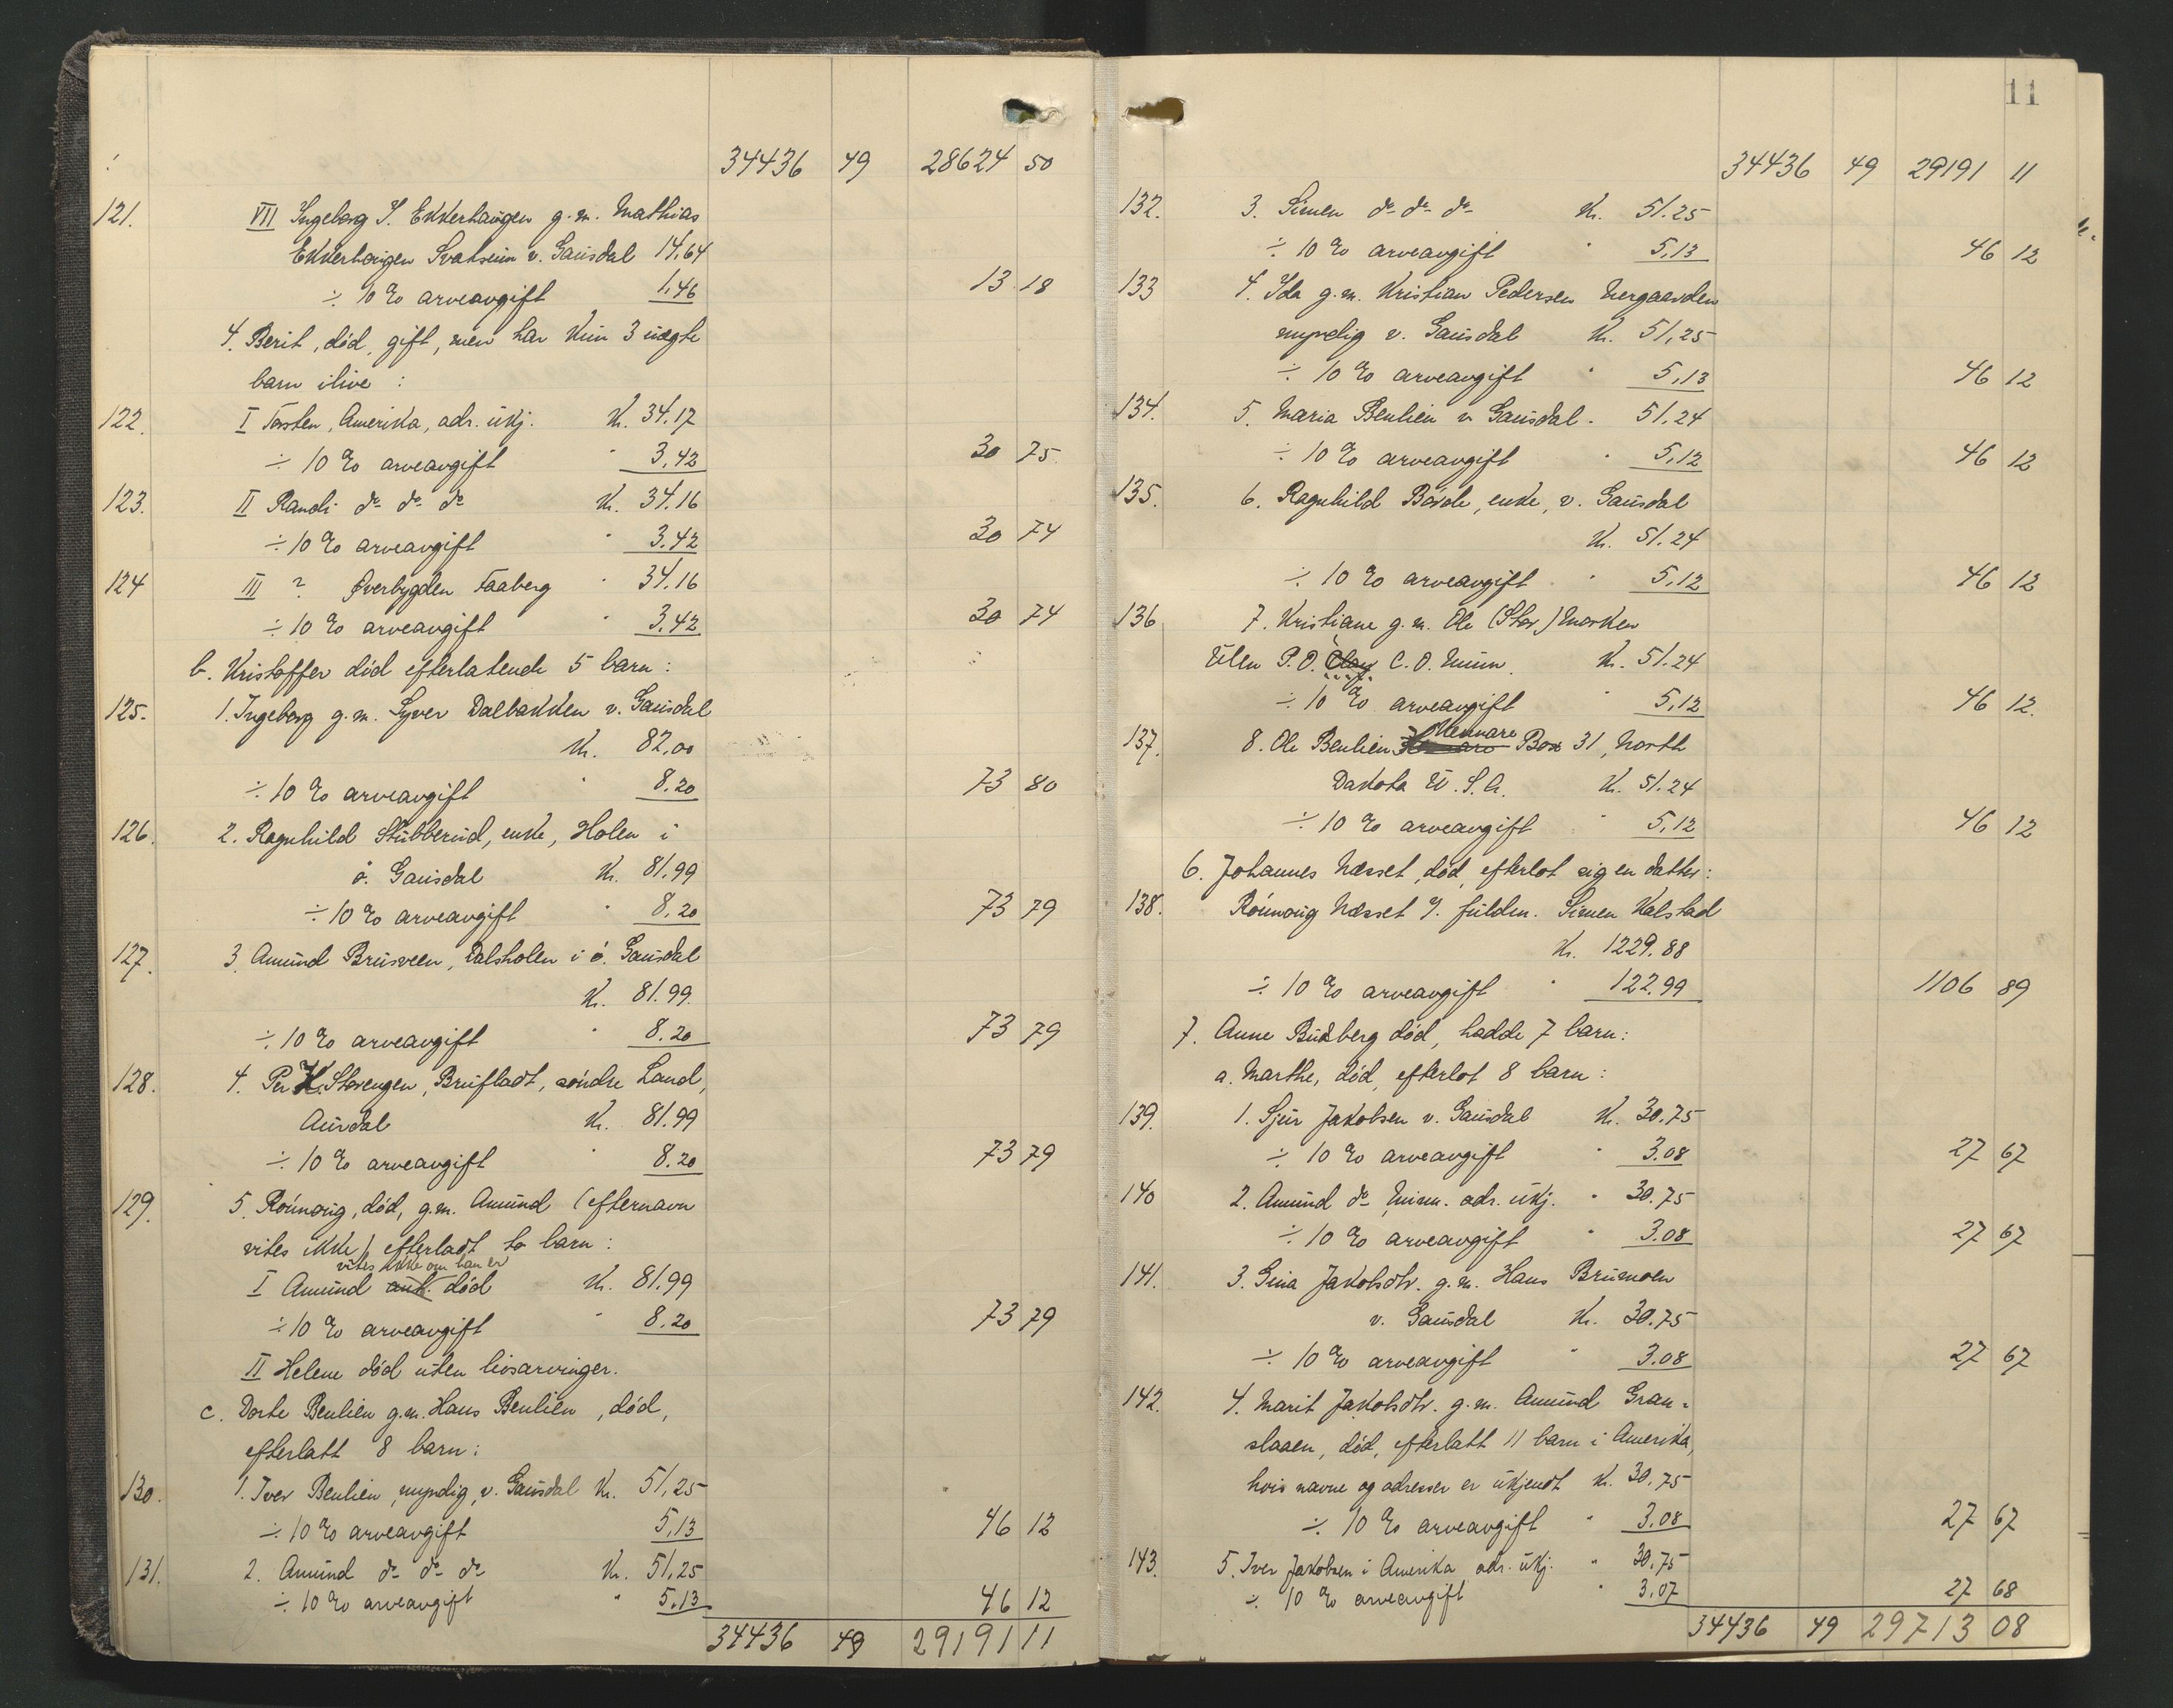 34436 49 28624 50
121. VII Ingeborg S. Ekkerhaugen g.m. Mathias
Ekkerhaugen Svatsum v. Gausdal 14,64
÷ 10 % arveavgift 1,46 13 18
4. Berit, død, gift, men har kun 3 uegte
barn ilive :
122. I Torsten, Amerika, adr. ukj. Kr. 34.17
÷ 10 % arveavgift " 3,42 30 75
123. II Randi do do do Kr. 34.16
÷ 10 % arveavgift " 3.42 30 74
124 III ? Øverbygden Faaberg " 34.16
÷ 10 % arveavgift " 3,42 30 74
b. Kristoffer død efterlatende 5 barn :
125. 1. Ingeborg g.m. Syver Dalbakken v. Gausdal
Kr. 82,00
÷ 10 % arveavgift " 8.20 73 80
126. 2. Ragnhild Stubberud, enke, Holen i
ö. Gausdal Kr. 81.99
÷ 10 % arveavgift " 8.20 73 79
127. 3. Amund Brusveen, Dalsholen i ö. Gausdal
Kr. 81.99
÷ 10 % arveavgift " 8.20 73 79
128. 4. Per K. Stavengen, Brufladt, söndre Land,
Aurdal Kr. 81.99
÷ 10 % arveavgift " 8.20 73 79
129. 5. Rönnaug, død, g.m. Amund (efternavn
vites ikke) efterladt to barn :
vites ikke om han er
I Amund ant. død Kr. 81.99
÷ 10 % arveavgift " 8.20 73 79
II Helene død uten livsarvinger.
c. Dorte Benlien g.m. Hans Benlien, død,
efterlatt 8 barn :
130. 1. Iver Benlien, myndig, v. Gausdal Kr. 51,25
÷ 10 % arveavgift 5,13 46 12
131. 2. Amund do do do Kr. 51,25
÷ 10 % arveavgift " 5.13 46 12
34436 49 29191 11
11
34436 49 29191 11
132. 3. Simen do do do Kr. 51.25
÷ 10 % arveavgift " 5,13 46 12
133 4. Ida g.m. Kristian Pedersen Nergaarden
myndig v. Gausdal Kr. 51,25
÷ 10 % arveavgift " 5,13 46 12
134. 5. Maria Benlien v. Gausdal " 51,24
÷ 10 % arveavgift " 5,12 46 12
135. 6. Ragnhild Börde, enke, v. Gausdal
Kr. 51.24
÷ 10 % arveavgift " 5,12 46 12
136 7. Kristiane g.m. Ole (Stor) Marken
Ulen P.O. Clay C.O. Minn. Kr. 51.24
÷ 10 % arveavgift " 5,12 46 12.
137. 8. Ole Benlien Box 31, North
Dakota U.S.A. Kr. 51.24
÷ 10 % arveavgift " 5,12 46 12
6. Johannes Næsset, død, efterlot sig en datter:
138. Rönnaug Næsset v. fuldm. Simen Kalstad
Kr. 1229.88
÷ 10 % arveavgift " 122.99 1106 89
7. Anne Budberg død, hadde 7 barn:
a. Marthe, død, efterlot 8 barn :
139. 1. Sjur Jakobsen v. Gausdal Kr. 30.75
÷ 10 % arveavgift " 3.08 27 67
140 2. Amund do Minn. adr. ukj. " 30.75
÷ 10 % arveavgift " 3.08 27 67
141. 3. Gina Jakobsdtr. g.m. Hans Brumoen
v. Gausdal Kr. 30.75
÷ 10 % arveavgift " 3.08 27 67
142. 4. Marit Jakobsdtr. g.m. Amund Gran-
slaaen, død, efterlatt 11 barn i Amerika,
hvis navne og adresser er ukjendt Kr. 30.75
÷ 10 % arveavgift " 3.08 27 67
143. 5. Iver Jakobsen i Amerika adr. ukj. " 30.75
÷ 10 % arveavgift " 3,07 27 68
34436 49 29713 08